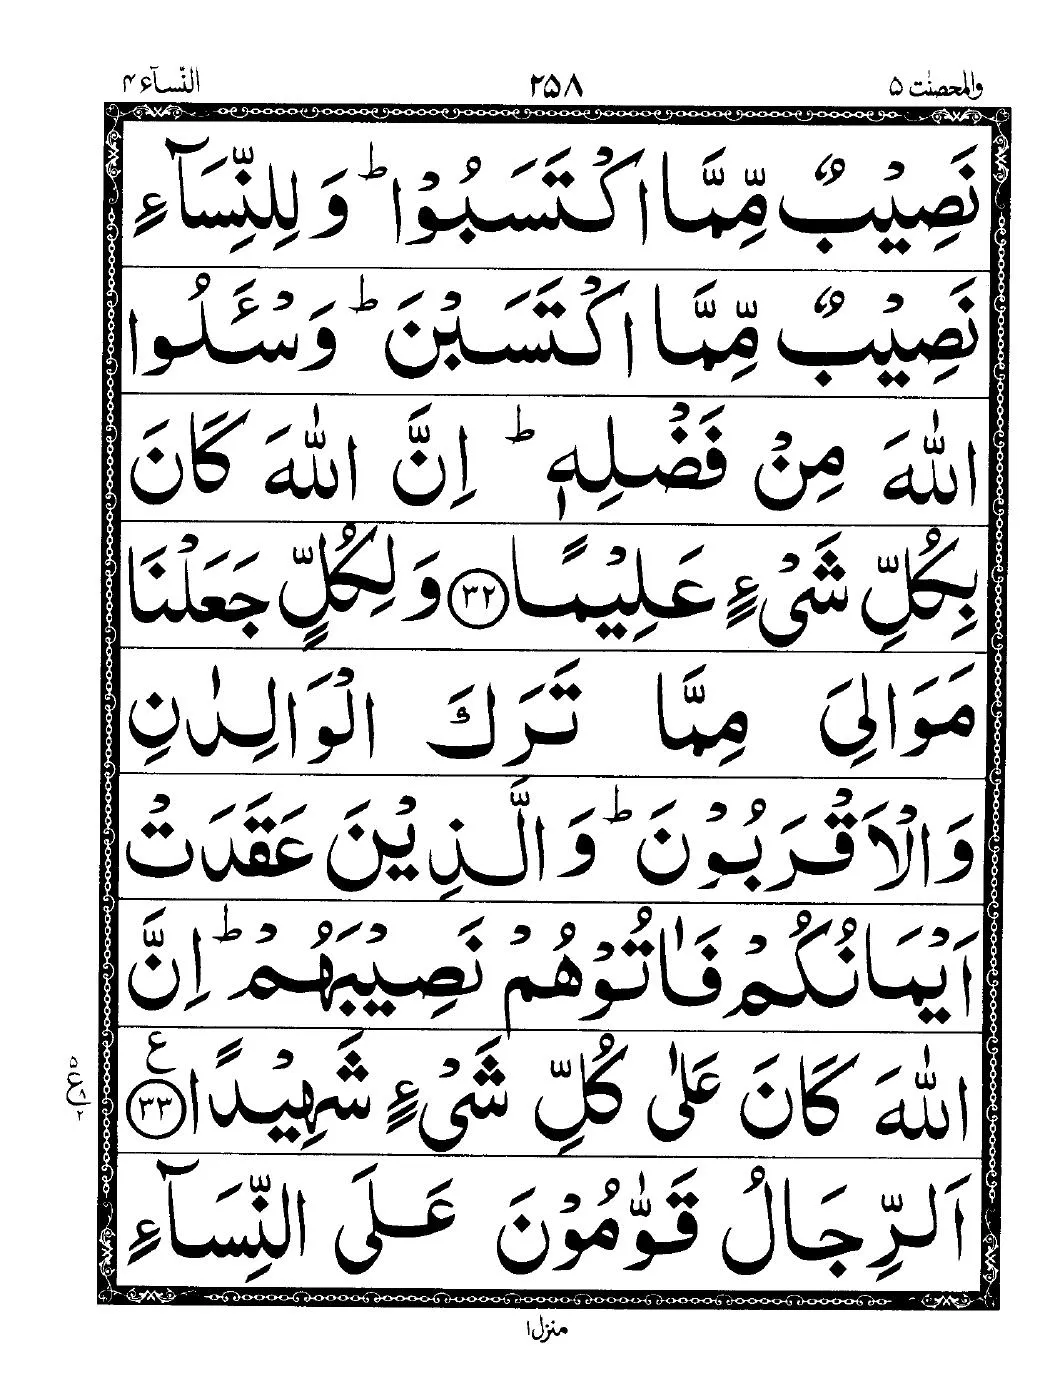 والمحصنٰت ۵ ۲۵۸ النّسآء ۴
نَصِيْبٌ مِّمَّا اكْتَسَبُوْا ؕ وَ لِلنِّسَآءِ
نَصِيْبٌ مِّمَّا اكْتَسَبْنَ ؕ وَسْـَٔلُوا
اللّٰهَ مِنْ فَضْلِهٖ ؕ اِنَّ اللّٰهَ كَانَ
بِكُلِّ شَیْءٍ عَلِيْمًا ﴿۳۲﴾ وَ لِكُلٍّ جَعَلْنَا
مَوَالِیَ مِمَّا تَرَكَ الْوَالِدٰنِ
وَ الْاَقْرَبُوْنَ ؕ وَ الَّذِيْنَ عَقَدَتْ
اَيْمَانُكُمْ فَاٰتُوْهُمْ نَصِيْبَهُمْ ؕ اِنَّ
اللّٰهَ كَانَ عَلٰی كُلِّ شَیْءٍ شَهِيْدًا ﴿۳۳﴾ ع
۵ ع ۸ ۲
اَلرِّجَالُ قَوّٰمُوْنَ عَلَی النِّسَآءِ
منزل ۱